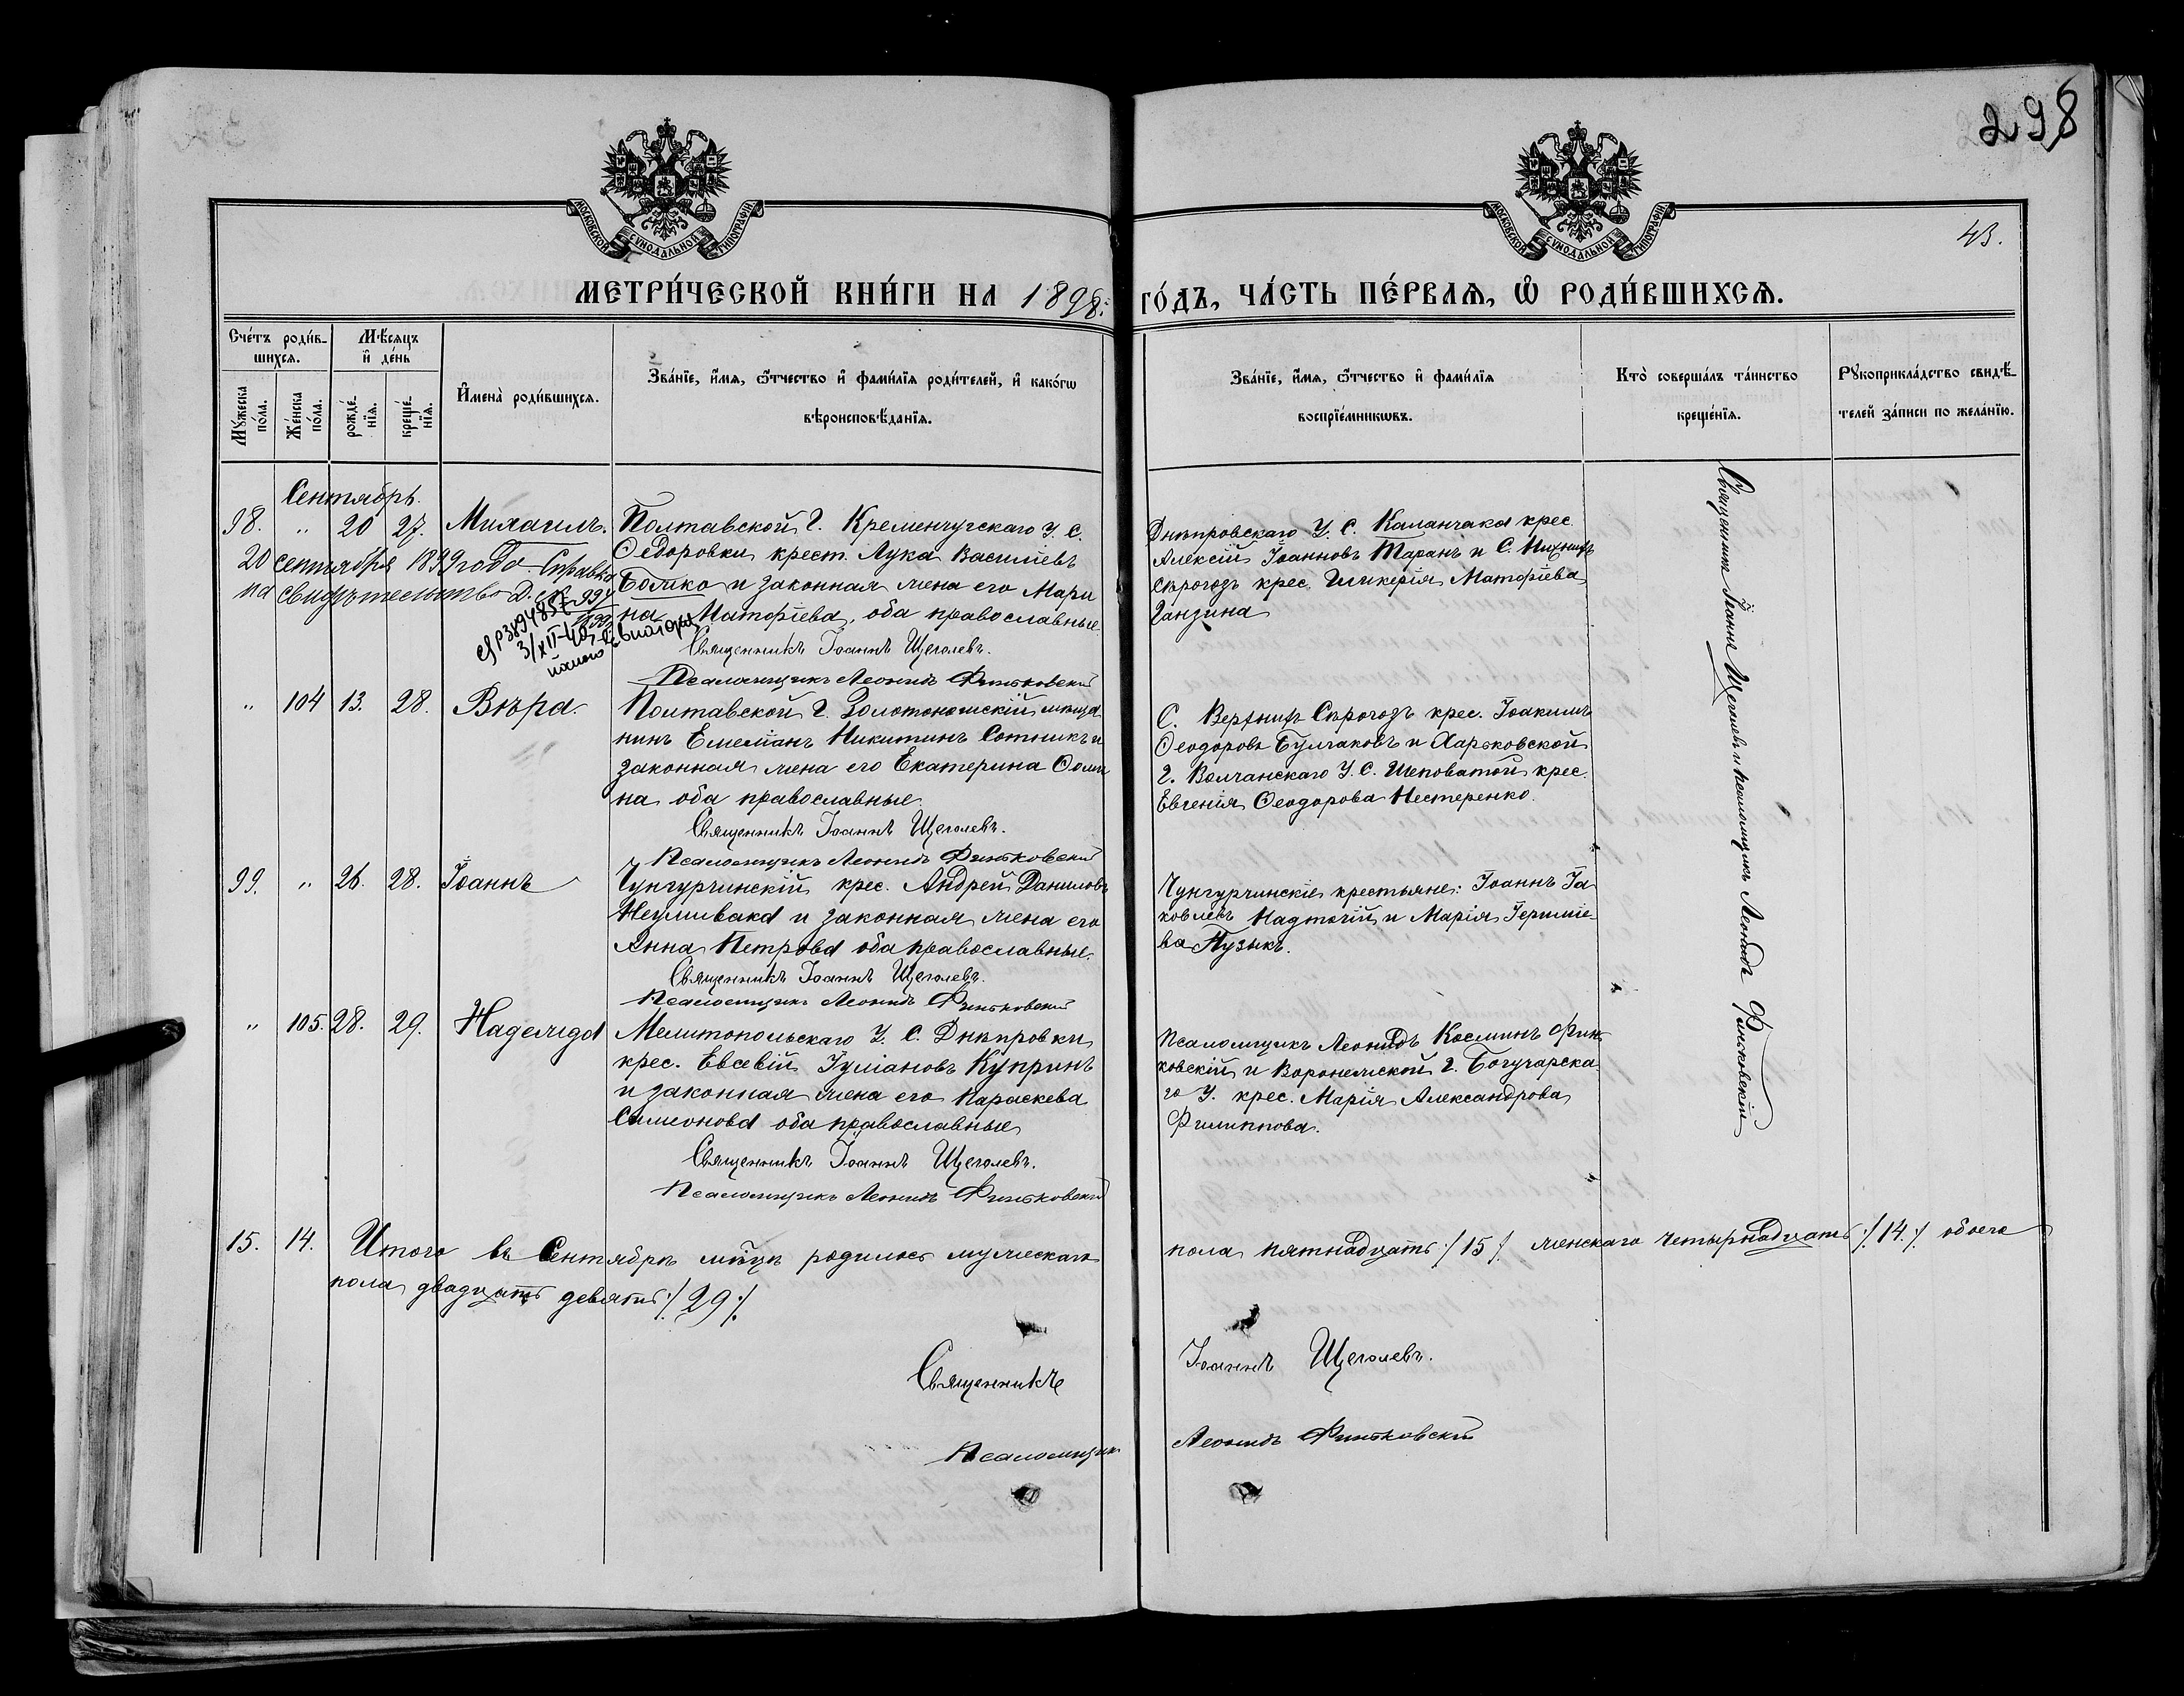 298
МОСКОВСКОЙ СУНОДАЛЬНОЙ ТИПОГРАФІИ
МОСКОВСКОЙ СУНОДАЛЬНОЙ ТИПОГРАФІИ
43.
МЕТРИ́ЧЕСКОЙ КНИ́ГИ НА 1898:
ГО́ДЪ, ЧА́СТЬ ПЕ́РВАѦ, Ѡ҆ РОДИ́ВШИХСѦ.
Сче́тъ роди́в-
шихсѧ.
Мѣ́сѧцъ
и҆ де́нь
Мꙋ́жеска
по́ла.
Же́нска
по́ла.
рожде́-
нїѧ.
креще́-
нїѧ.
И҆мена̀ роди́вшихсѧ.
Зва́нїе, и҆́мѧ, ѻ҆́тчество и҆ фами́лїѧ роди́телей, и҆ како́гѡ
вѣроисповѣ́данїѧ.
Зва́нїе, и҆́мѧ, ѻ҆́тчество и҆ фами́лїѧ
воспрїе́мникѡвъ.
Кто̀ соверша́лъ та́инство
креще́нїѧ.
Рꙋкоприкла́дство свидѣ́-
телей за́писи по жела́нїю.
Сентябрь.
98. „ 20 27. Михаилъ.
Полтавской Г. Кременчугскаго У. С.
Ѳедоровки крест. Лука Василіевъ
Бойко и законная жена его Мари
на Матѳіева, оба православные
Священникъ Іоаннъ Щеголевъ.
Псаломщикъ Леонидъ Финьковскій
20 сентября 1899 года Справка
на свидѣтельство 994
3/XII-40
Днѣпровскаго У. С. Каланчака крес.
Алексій Іоанновъ Таранъ и С. Нижнихъ
Сѣрогозъ крес. Гликерія Матѳіева
Ганзина
Священникъ Іоаннъ Щеголевъ и псаломщикъ Леонидъ Финьковскій
„ 104 13. 28. Вѣра.
Полтавской Г. Золотоношскій мѣща
нинъ Емеліанъ Никитинъ Сотникъ и
законная жена его Екатерина Ѳоми
на оба православные.
Священникъ Іоаннъ Щеголевъ.
Псаломщикъ Леонидъ Финьковскій
С. Верхнихъ Сѣрогозъ крес. Іоакимъ
Ѳеодоровъ Булчаковъ и Харьковской
Г. Волчанскаго У. С. Шеповатой крес.
Евгенія Ѳеодорова Нестеренко.
99. „ 26. 28. Іоаннъ
Чунгурчинскій крес. Андрей Даниловъ
Неумивака и законная жена его
Анна Петрова оба православные.
Священникъ Іоаннъ Щеголевъ.
Псаломщикъ Леонидъ Финьковскій
Чунгурчинскіе крестьяне: Іоаннъ Іа
ковлевъ Надточій и Марія
ва Пузыкъ.
„ 105. 28. 29. Надежда
Мелитопольскаго У. С. Днѣпровки
крес. Евсевій Іуліановъ Купринъ
и законная жена его Параскева
Симеонова оба православные
Священникъ Іоаннъ Щеголевъ.
Псаломщикъ Леонидъ Финьковскій
Псаломщикъ Леонидъ Косминъ Финь
ковскій и Воронежской Г. Богучарска
го У. крес. Марія Александрова
Филиппова.
15. 14. Итого въ Сентябрѣ мѣцѣ родилось мужескаго
пола пятнадцать /15/ женскаго четырнадцать /14./ обоего
пола двадцать девять /29/.
Священникъ Іоаннъ Щеголевъ.
Псаломщикъ Леонидъ Финьковскій